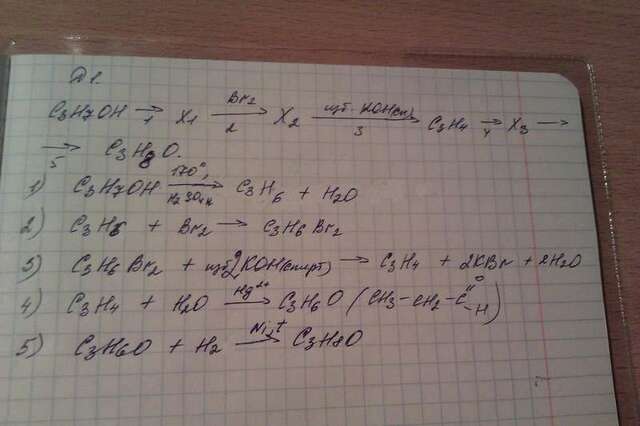 №1.
C3H7OH →1 X1 Br2→2 X2 изб. KOH(сп)→3 C3H4 →4 X3 →
→5 C3H8O.
1) C3H7OH 170°, H2SO4 к→ C3H6 + H2O
2) C3H6 + Br2 → C3H6Br2
3) C3H6Br2 + изб 2KOH(спирт) → C3H4 + 2KBr + 2H2O
4) C3H4 + H2O Hg2+→ C3H6O (CH3-CH2-C=O-H)
5) C3H6O + H2 Ni, t→ C3H8O